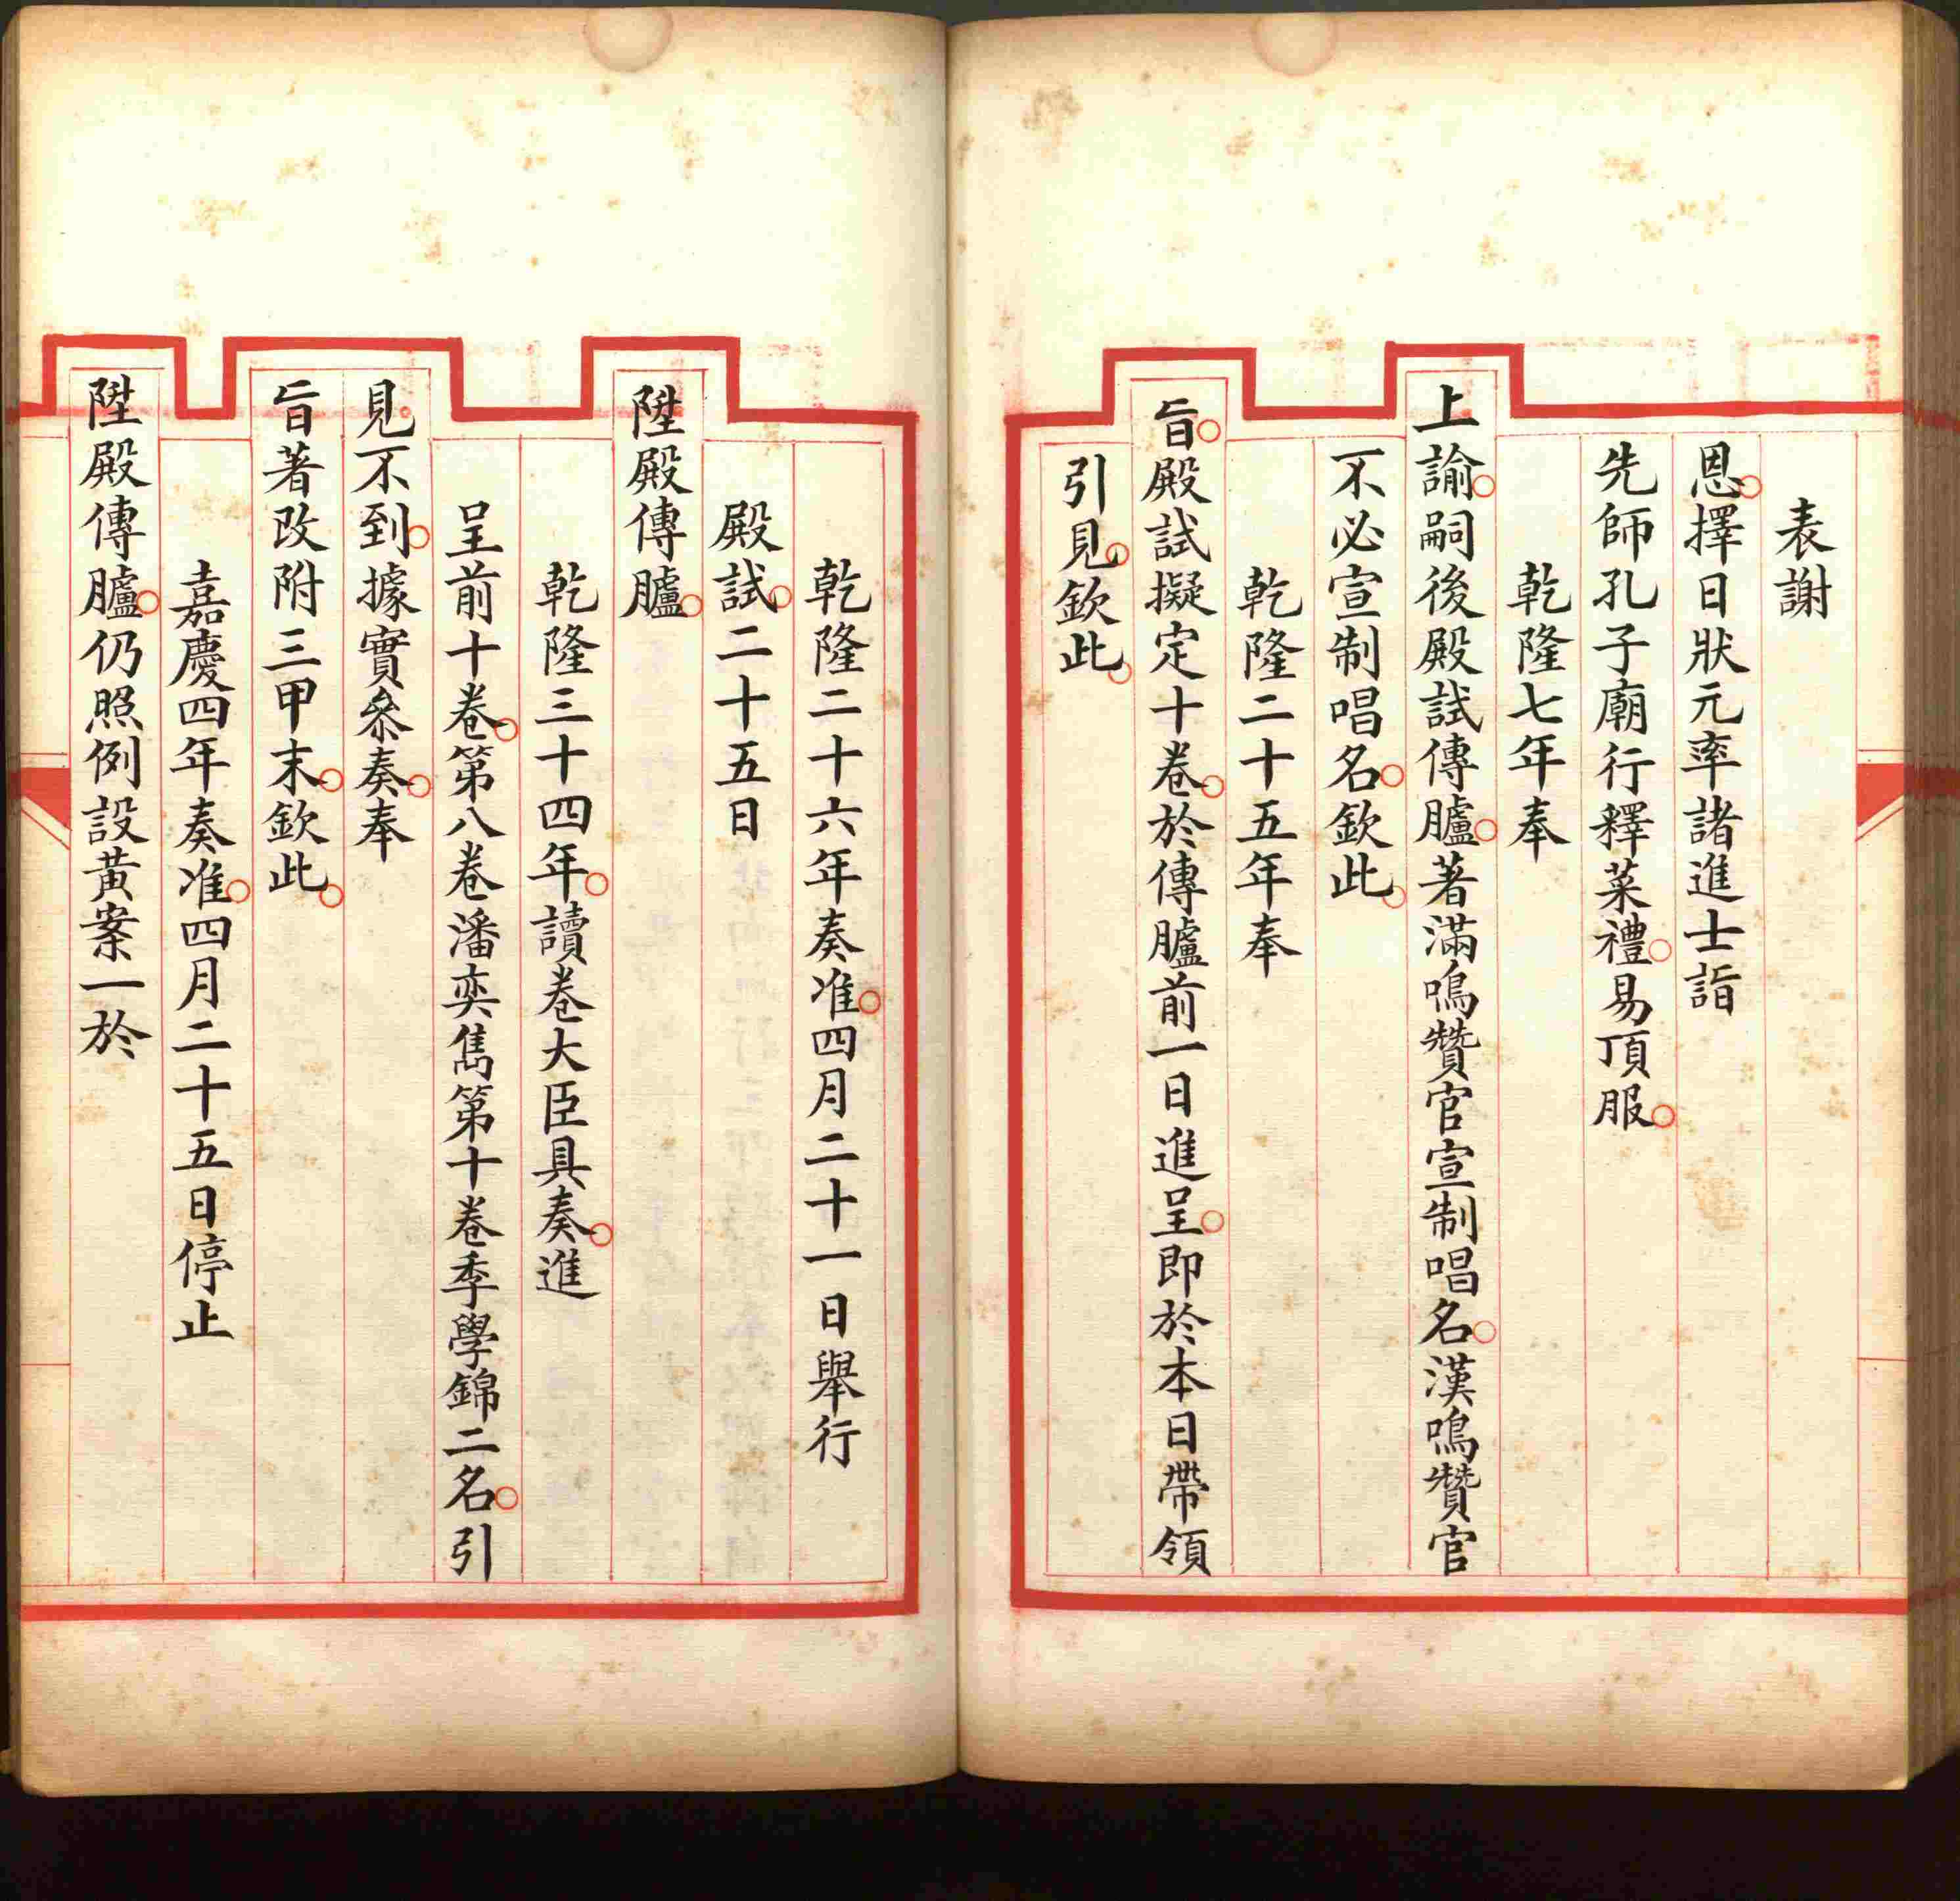 表謝
恩擇日狀元率諸進士詣
先師孔子廟行釋菜禮易頂服
乾隆七年奉
上諭嗣後殿試傳臚著滿鳴贊官宣制唱名漢鳴贊官
不必宣制唱名欽此
乾隆二十五年奉
旨殿試擬定十卷於傳臚前一日進呈即於本日帶領
引見欽此
乾隆二十六年奏准四月二十一日舉行
殿試二十五日
陞殿傳臚
乾隆三十四年讀卷大臣具奏進
呈前十卷第八卷潘奕雋第十卷季學錦二名引
見不到據實叅奏奉
旨著改附三甲末欽此
嘉慶四年奏准四月二十五日停止
陞殿傳臚仍照例設黃案一於